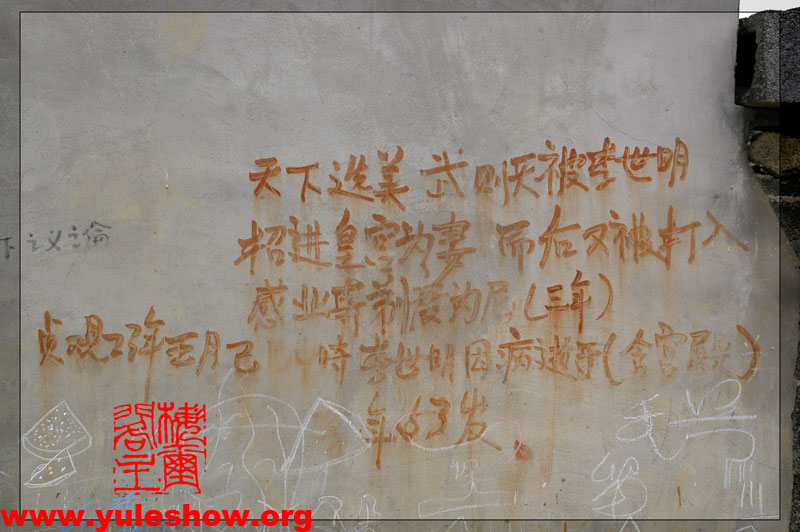 天下选美 武则天被李世明
招进皇宫为妻 而后又被打入
感业寺制度为尼(三年)
贞观二年五月己 时李世明因病逝于(含宫殿)
年63岁。
下之义之伦
www.yuleshow.org